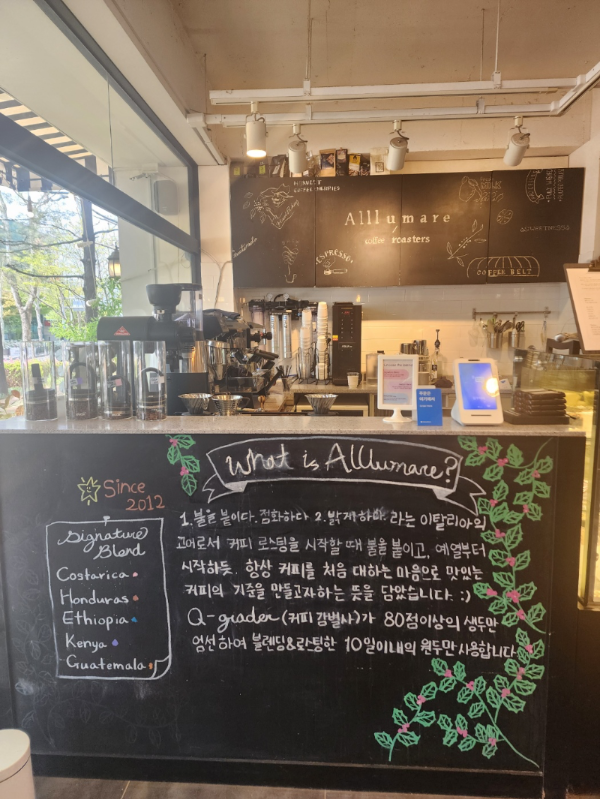 Alllumare
coffee roasters
ESPRESSO
COFFEE BELT
What is Alllumare?
Since
2012
Signature
Blend
Costarica
Honduras
Ethiopia
Kenya
Guatemala
1. 불을 붙이다. 점화하다 2. 밝게하다. 라는 이탈리아의
고어로서 커피 로스팅을 시작할 때 불을 붙이고, 예열부터
시작하듯. 항상 커피를 처음 대하는 마음으로 맛있는
커피의 기준을 만들고자하는 뜻을 담았습니다. :)
Q-grader (커피 감별사)가 80점이상의 생두만
엄선하여 블렌딩&로스팅한 10일이내의 원두만 사용합니다